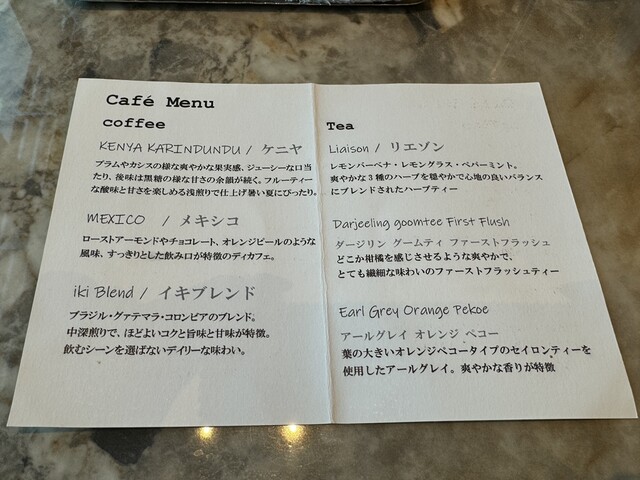 Café Menu
coffee
KENYA KARINDUNDU / ケニヤ
プラムやカシスの様な爽やかな果実感、ジューシーな口当
たり、後味は黒糖の様な甘さの余韻が続く。フルーティー
な酸味と甘さを楽しめる浅煎りで仕上げ暑い夏にぴったり。
MEXICO / メキシコ
ローストアーモンドやチョコレート、オレンジピールのような
風味、すっきりとした飲み口が特徴のディカフェ。
iki Blend / イキブレンド
ブラジル・グァテマラ・コロンビアのブレンド。
中深煎りで、ほどよいコクと旨味と甘味が特徴。
飲むシーンを選ばないデイリーな味わい。
Tea
Liaison / リエゾン
レモンバーベナ・レモングラス・ペパーミント。
爽やかな3種のハーブを穏やかで心地の良いバランス
にブレンドされたハーブティー
Darjeeling goomtee First Flush
ダージリン グームティ ファーストフラッシュ
どこか柑橘を感じさせるような爽やかで、
とても繊細な味わいのファーストフラッシュティー
Earl Grey Orange Pekoe
アールグレイ オレンジ ペコー
葉の大きいオレンジペコータイプのセイロンティーを
使用したアールグレイ。爽やかな香りが特徴